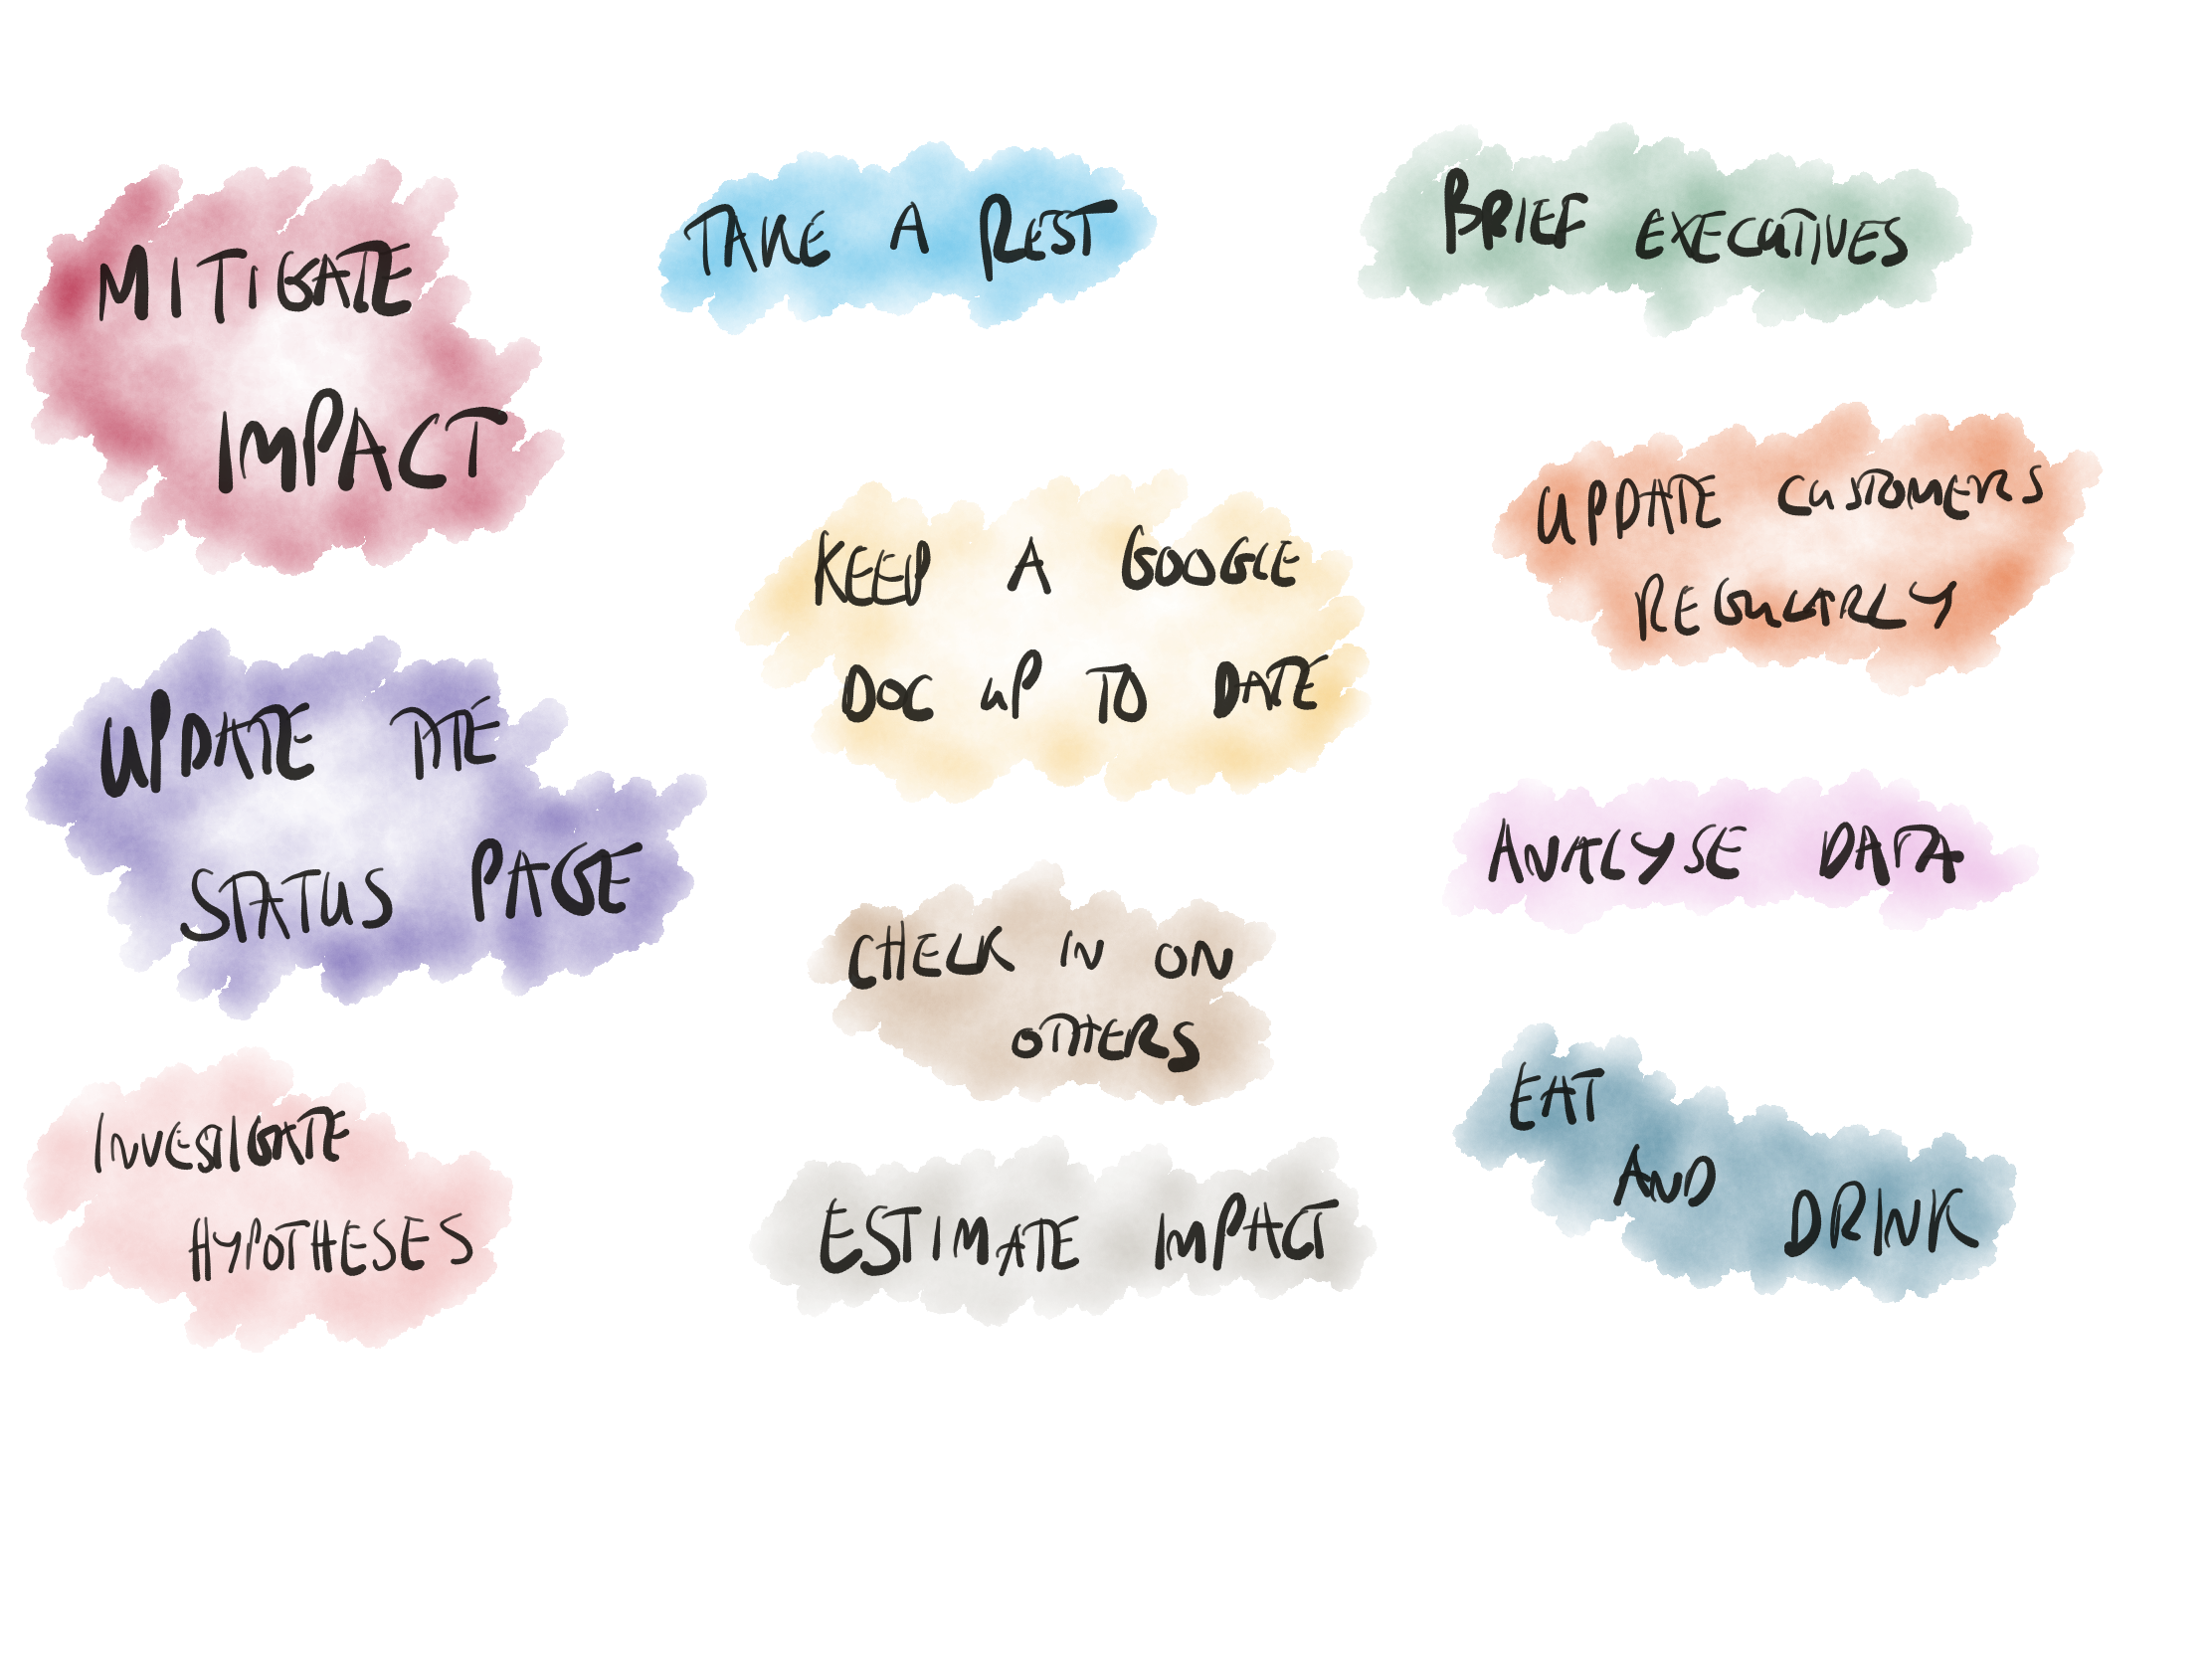 MITIGATE
IMPACT
UPDATE THE
STATUS PAGE
INVESIGATE
HYPOTHESES
TAKE A REST
KEEP A GOOGLE
DOC UP TO DATE
CHECK IN ON
OTHERS
ESTIMATE IMPACT
BRIEF EXECUTIVES
UPDATE CUSTOMERS
REGULARLY
ANALYSE DATA
EAT
AND
DRINK